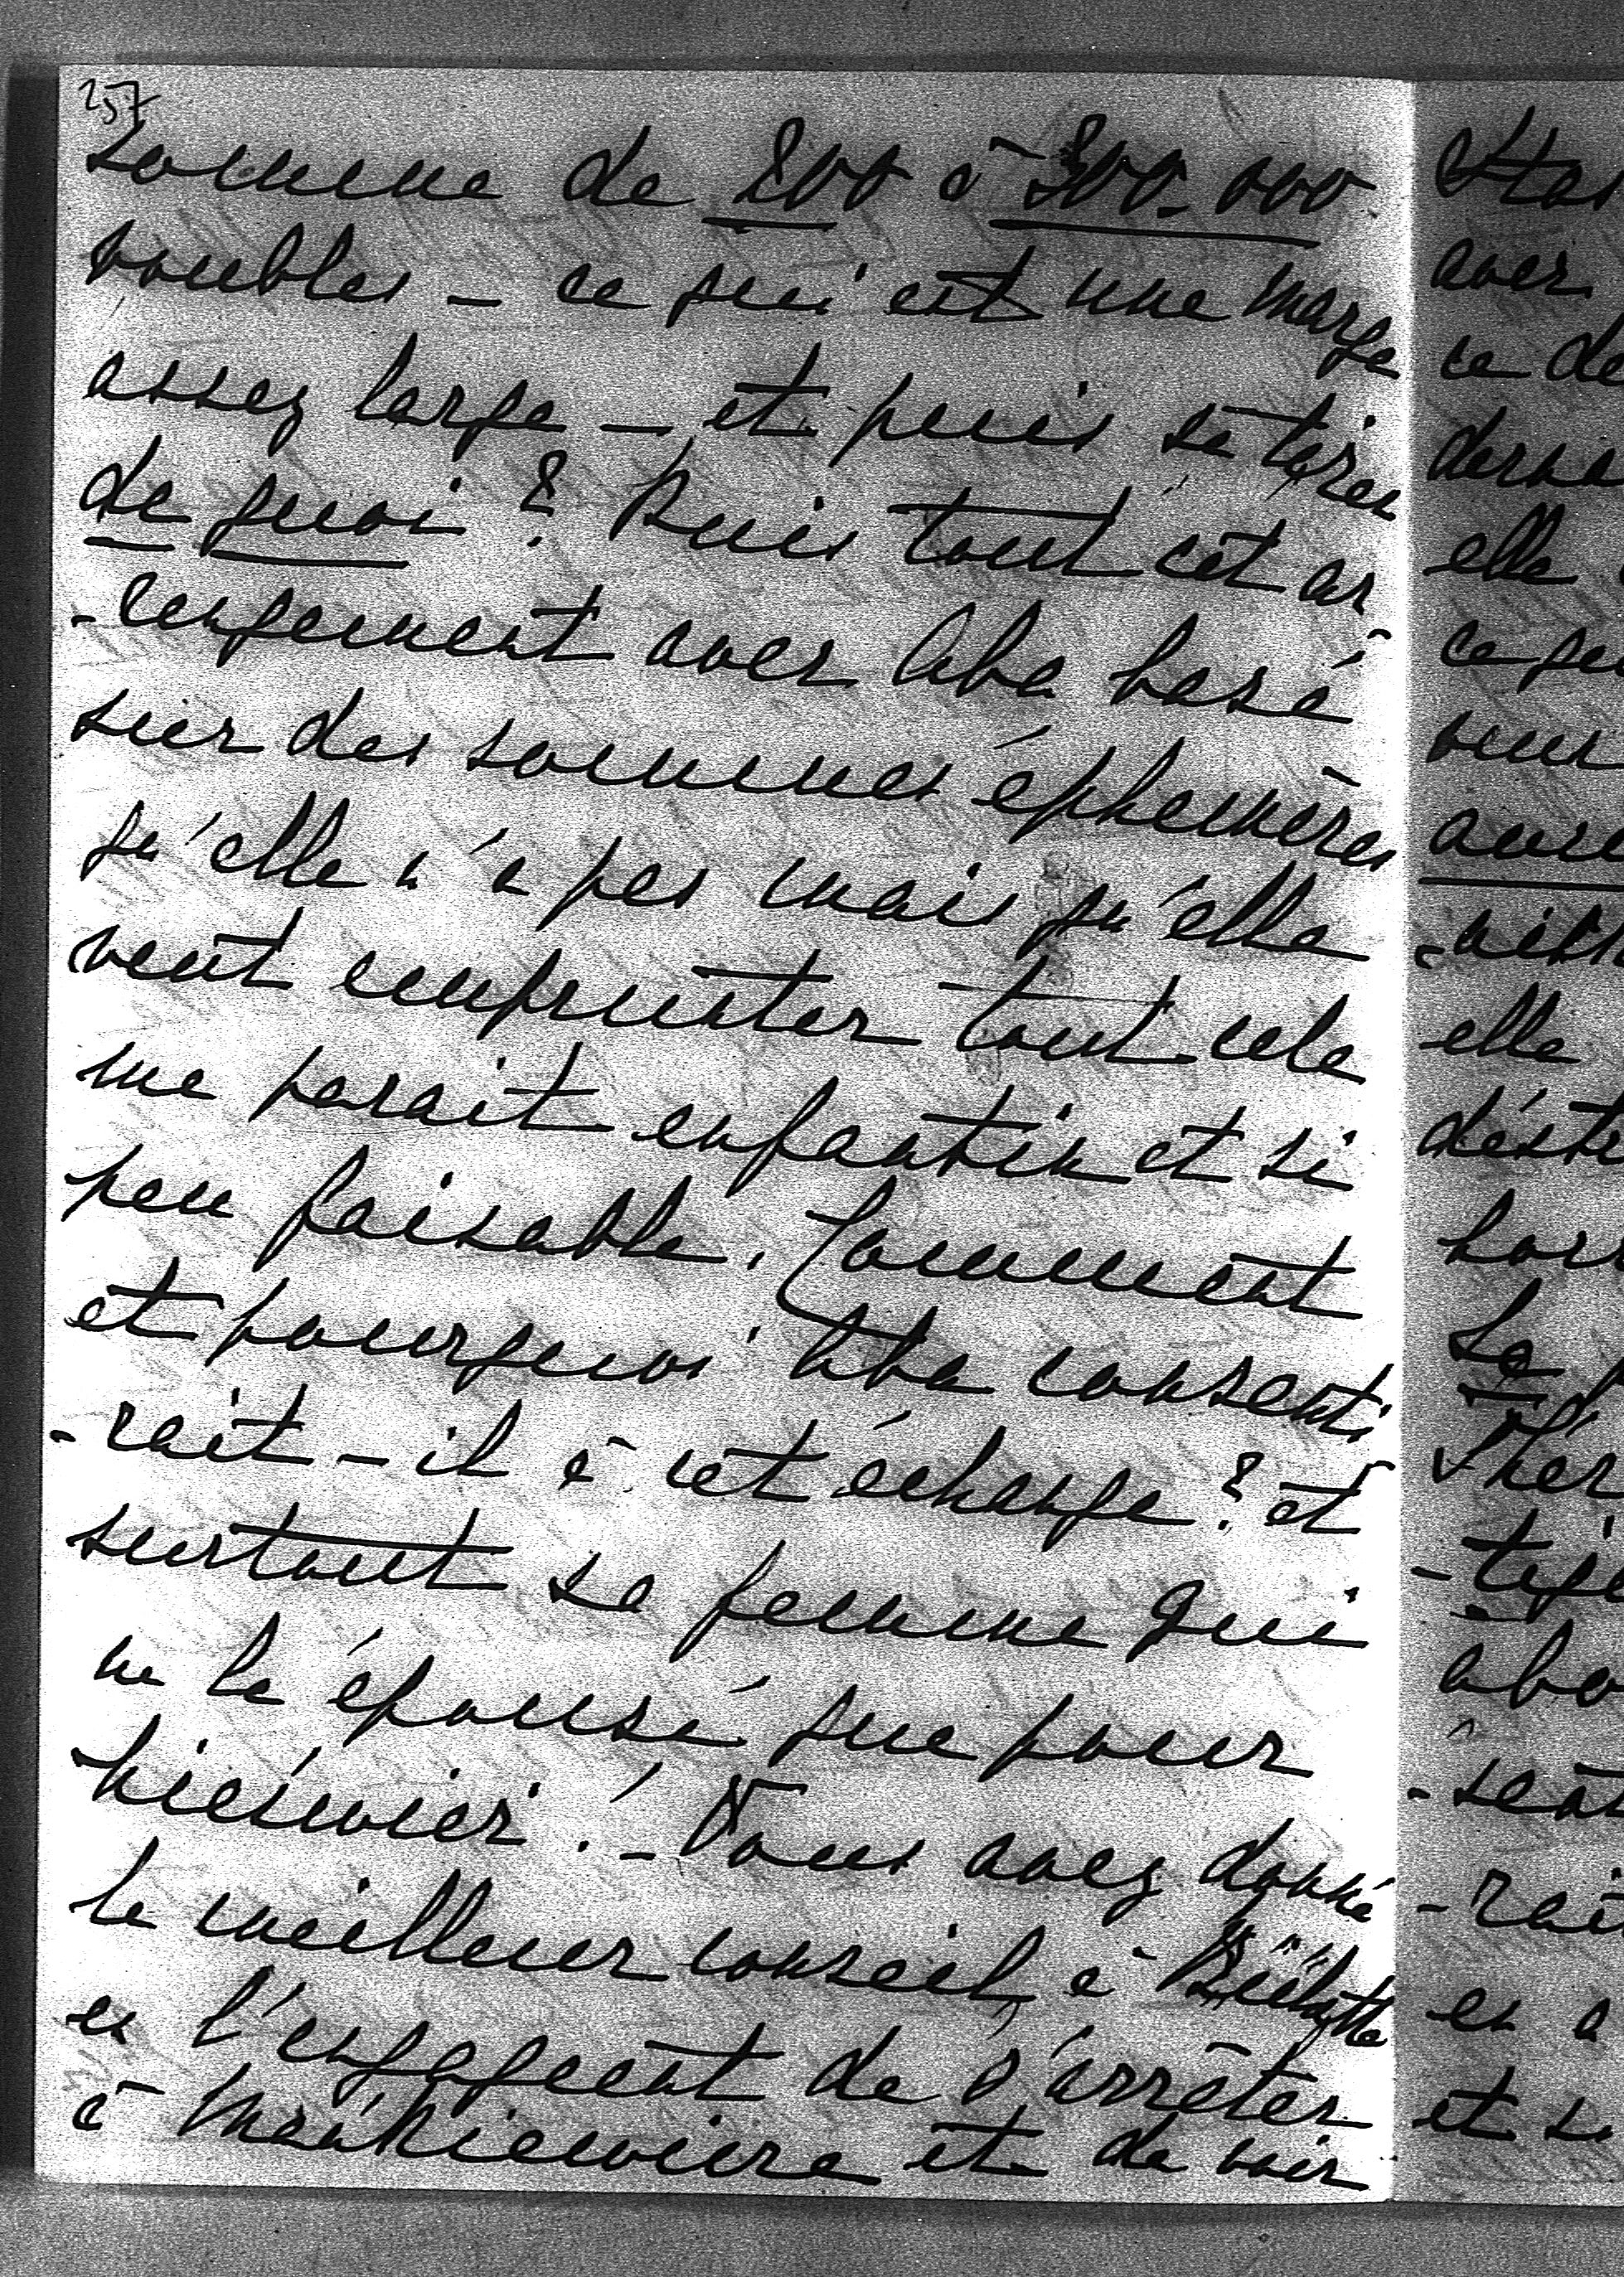 257
somme de 200 à 300.000
roubles - ce qui est une marge
assez large - et puis se tirer
de quoi? Puis tout cet ar
-rengement avec Aba basé
sur des sommes éphémères
qu'elle n'a pas mais qu'elle
veut emprunter tout cela
me parait enfantin et si
peu faisable. Comment
et pourquoi Aba consenti
-rait-il à cet échange? et
surtout sa femme qui
ne l'a épousé que pour
. - Vous avez donné
le meilleur conseil à
en l'engageant de s'arrêter
à et de voir
avec
ce de
elle
ce
elle
La
-rai
en a
et s